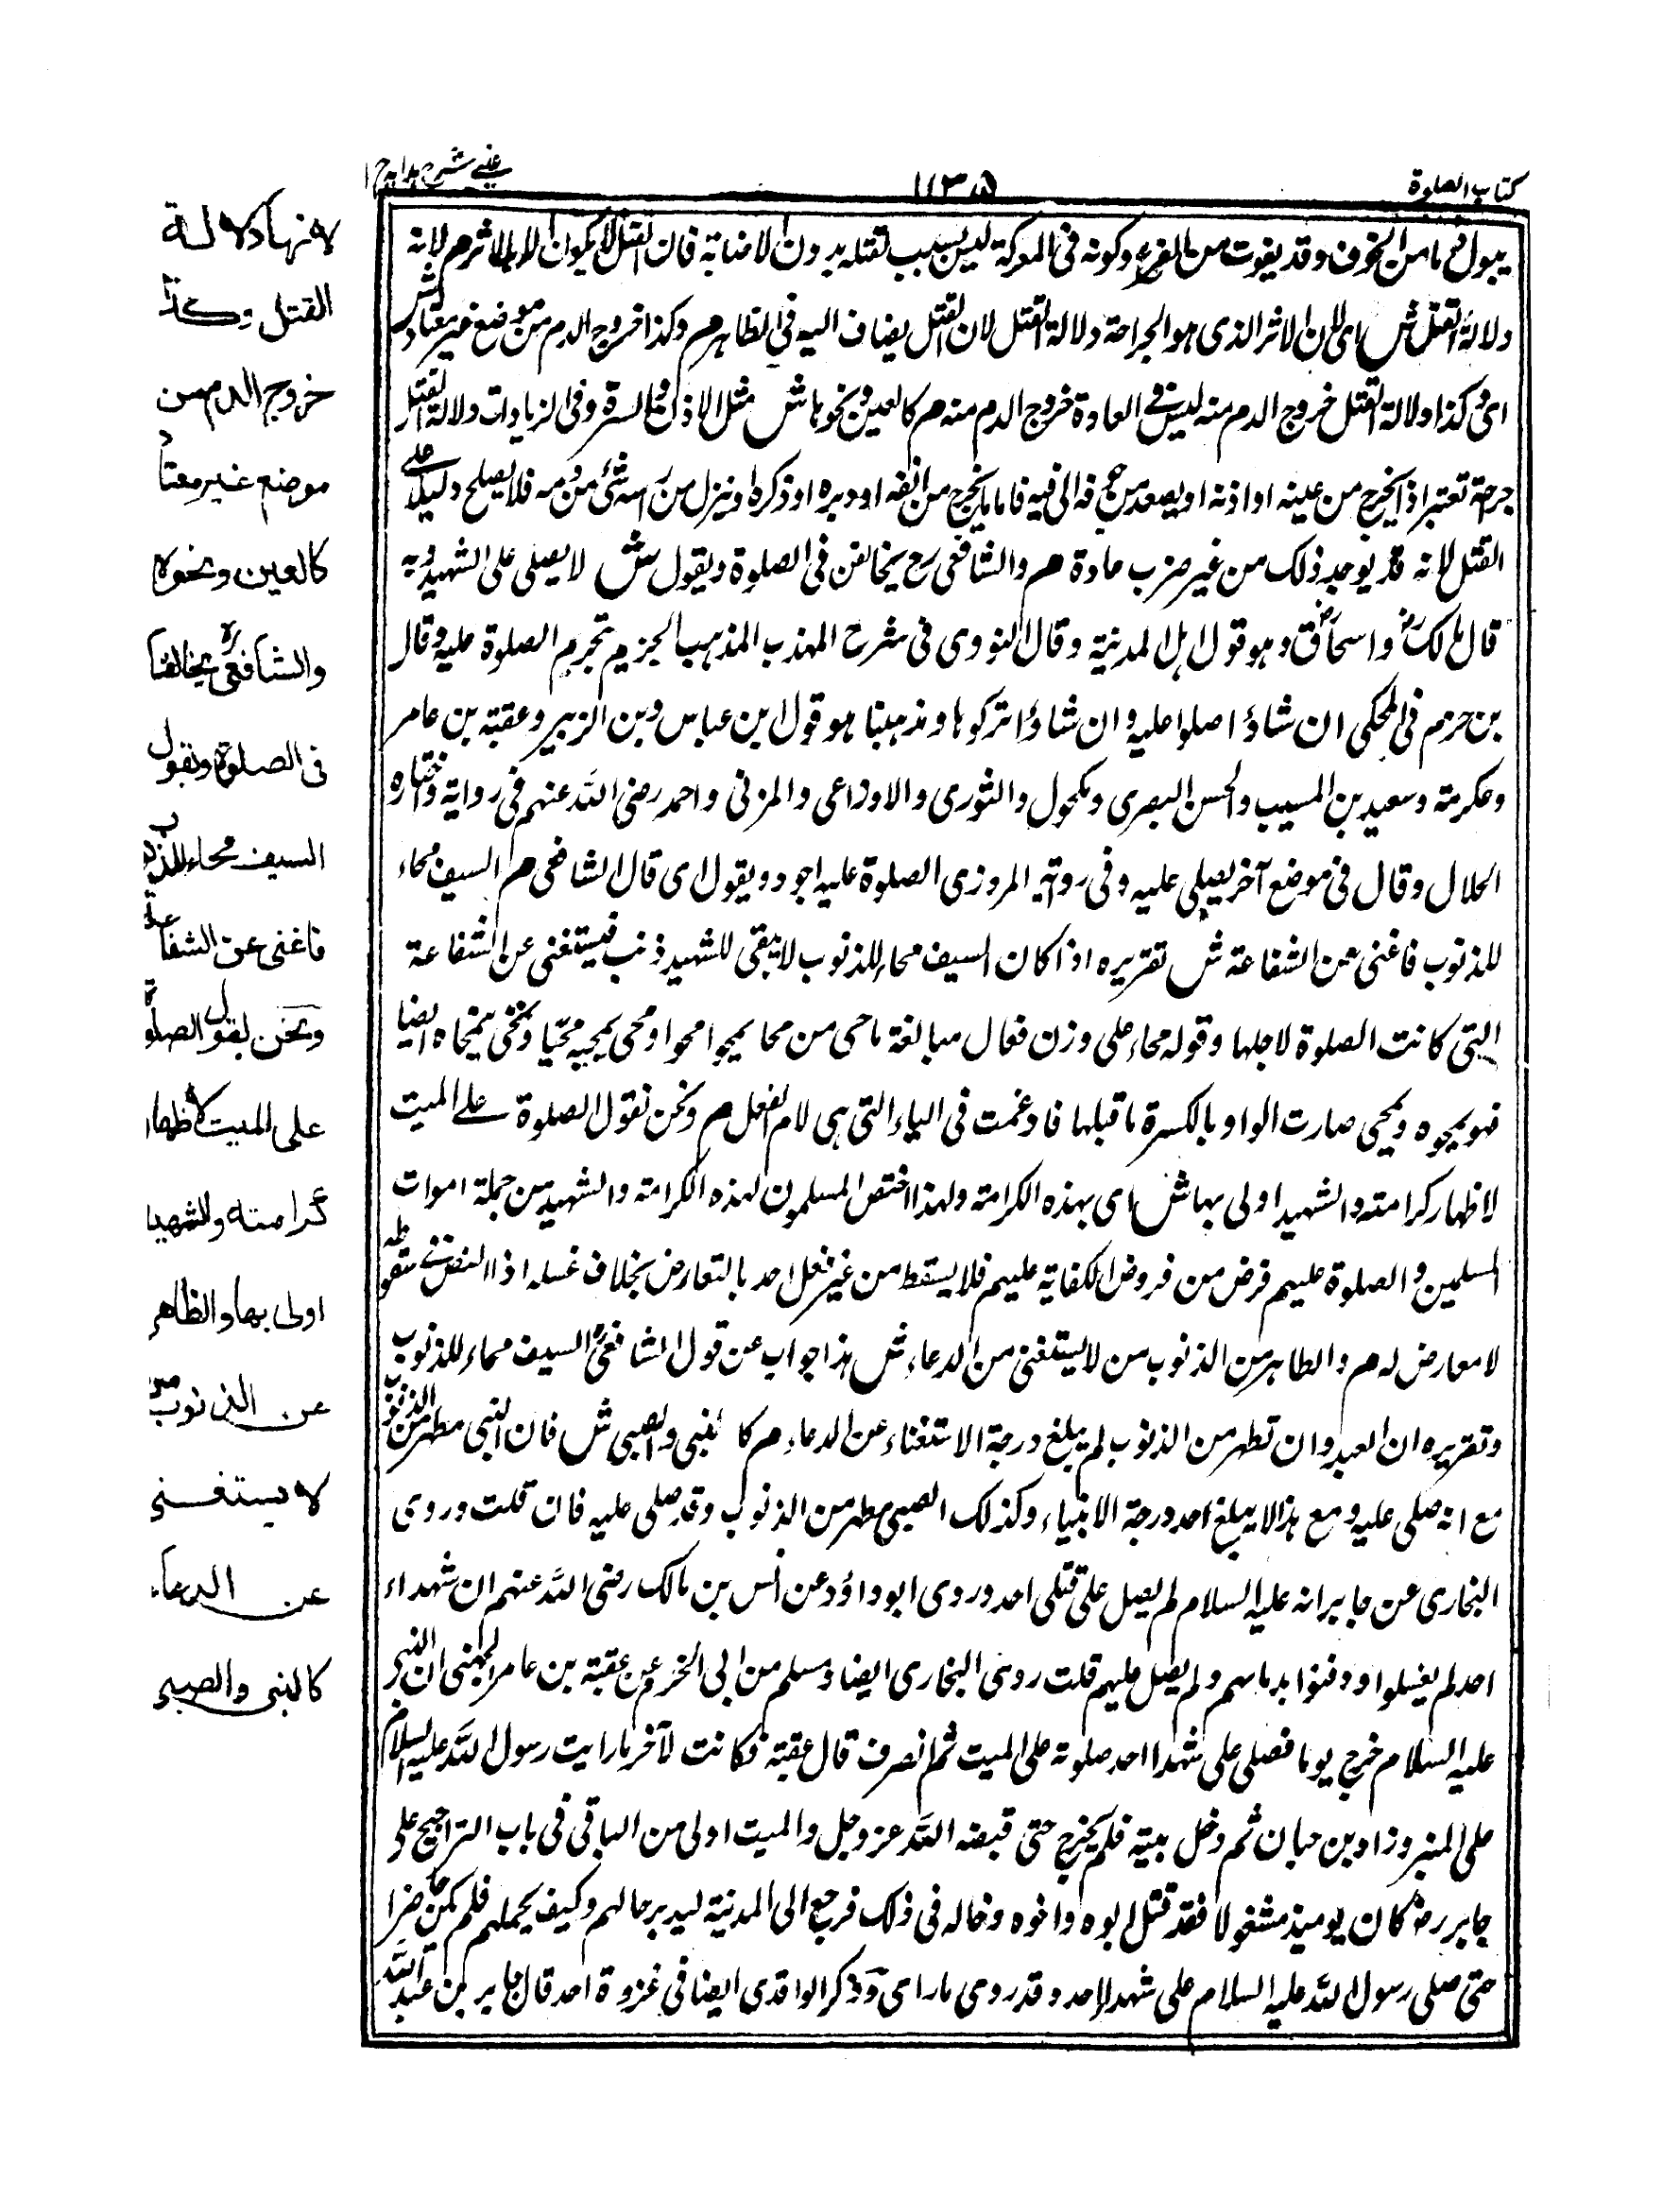 كتاب الصلوة
١١٣٥
عینے شرح ہدایہ ج ١
يبول دما من الخوف وقد يفوت من الفزع وكونه فى المعركة ليس بسبب لقتله بدون الاصابة فان القتل لا يكون الا بالاثر م لانه
دلالة القتل ش اى لان الاثر الذى هو الجراحة دلالة القتل لان القتل يضاف اليه فى الظاهر م وكذا خروج الدم من موضع غير معتاد ش
اى وكذا دلالة القتل خروج الدم منه ليس فى العادة خروج الدم منه م كالعين ونحوها ش مثل الاذن والسرة وفى الزيادات دلالة القتل
جرحة تعتبر اذ يخرج من عينه او اذنه او يصعد من جوفه الى فيه فاما ما يخرج من انفه او دبره او ذكره او ينزل من راسه شئ من دمه فلا يصلح دليلا على
القتل لانه قد يوجد ذلك من غير ضرب عادة م والشافعى رح يخالفن فى الصلوة ويقول ش لا يصلى على الشهيد وبه
قال مالك رض واسحاق رض وهو قول اهل المدنية وقال النووى فى شرح المهذب المذهب الجزيم تجرم الصلوة عليه وقال
بن حزم فى المحكى ان شاؤا صلوا عليه وان شاؤا تركوها ومذهبنا هو قول ابن عباس وبن الزبير وعقبته بن عامر
وعكرمته وسعيد بن المسيب والحسن البصرى ومكحول والثورى والاوزاعى والمزنى واحمد رضى الله عنهم فى رواية واختاره
الحلال وقال فى موضع آخر يصلى عليه وفى رواية المروزى الصلوة عليه اجود ويقول اى قال الشافعى م السيف محاء
للذنوب فاغنى عن الشفاعة ش تقريره اذا كان السيف محاء للذنوب لا يبقى للشهيد ذنب فيستغنى عن الشفاعة
التى كانت الصلوة لاجلها وقوله محاء على وزن فعال مبالغة ماحى من محا يمحوا محوا ومحى يمحيه محيا ومحى يمحاه ايضا
فهو يمحوه ويمحى صارت الواو بالكسرة ما قبلها فادغمت فى الياء التى هى لام الفعل م ونحن نقول الصلوة على الميت
لاظهار كرامته والشهيد اولى بها ش اى بهذه الكرامة ولهذا اختص المسلمون لهذه الكرامة والشهيد من جملة اموات
المسلمين والصلوة عليهم فرض من فروض الكفاية عليهم فلا يسقط من غير فعل احد بالتعارض بخلاف غسله اذ النص فى سقوطه
لا معارض له م والطاهر من الذنوب من لا يستغنى من الدعاء ش هذا جواب عن قول الشافعى السيف محاء للذنوب
وتقريره ان العبد وان تطهر من الذنوب لم يبلغ درجة الاستغناء عن الدعاء م كا لنبى والصبى ش فان النبى مطهر من الذنوب
مع انه صلى عليه ومع هذا لا يبلغ احد درجة الانبياء وكذلك الصبى مطهر من الذنوب وقد صلى عليه فان قلت وروى
البخارى عن جابر انه عليه السلام لم يصل على قتلى احد وروى ابو داؤد عن انس بن مالك رضى الله عنهم ان شهداء
احد لم يغسلوا ودفنوا بدماسهم ولم يصل عليهم قلت روى البخارى ايضا ومسلم من ابى الخر عن عقبة بن عامر الجهنى ان النبى
عليه السلام خرج يوما فصلى على شهدا احد صلوته على الميت ثم انصرف قال عقبة فكانت لآخر ما رايت رسول الله عليه السلام
على المنبر وزاد بن حبان ثم دخل بيته فلم يخرج حتى قبضه الله عز وجل والميت اولى من الباقى فى باب التراجيح على
جابر رض كان يوميذ مشغولا فقد قتل ابوه واخوه وخاله فى ذلك فرجع الى المدنية ليدبر حالهم وكيف يحملهم فلم يكن حاضرا
حتى صلى رسول الله عليه السلام على شهداء احد وقد روى ما راى وذكر الواقدى ايضا فى غزوة احد قال جابر بن عبد الله
لانها دلالة
القتل وكذا
خروج الدم من
موضع غير معتاد
كالعين ونحوه
والشافعى ره يخالفنا
فى الصلوة ويقول
السيف محاء للذنوب
فاغنى عن الشفاعة
ونحن نقول الصلوة
على الميت لاظهار
كرامته والشهيد
اولى بها والظاهر
عن الذنوب من
لا يستغنى
عن الدعاء
كالنبى والصبى